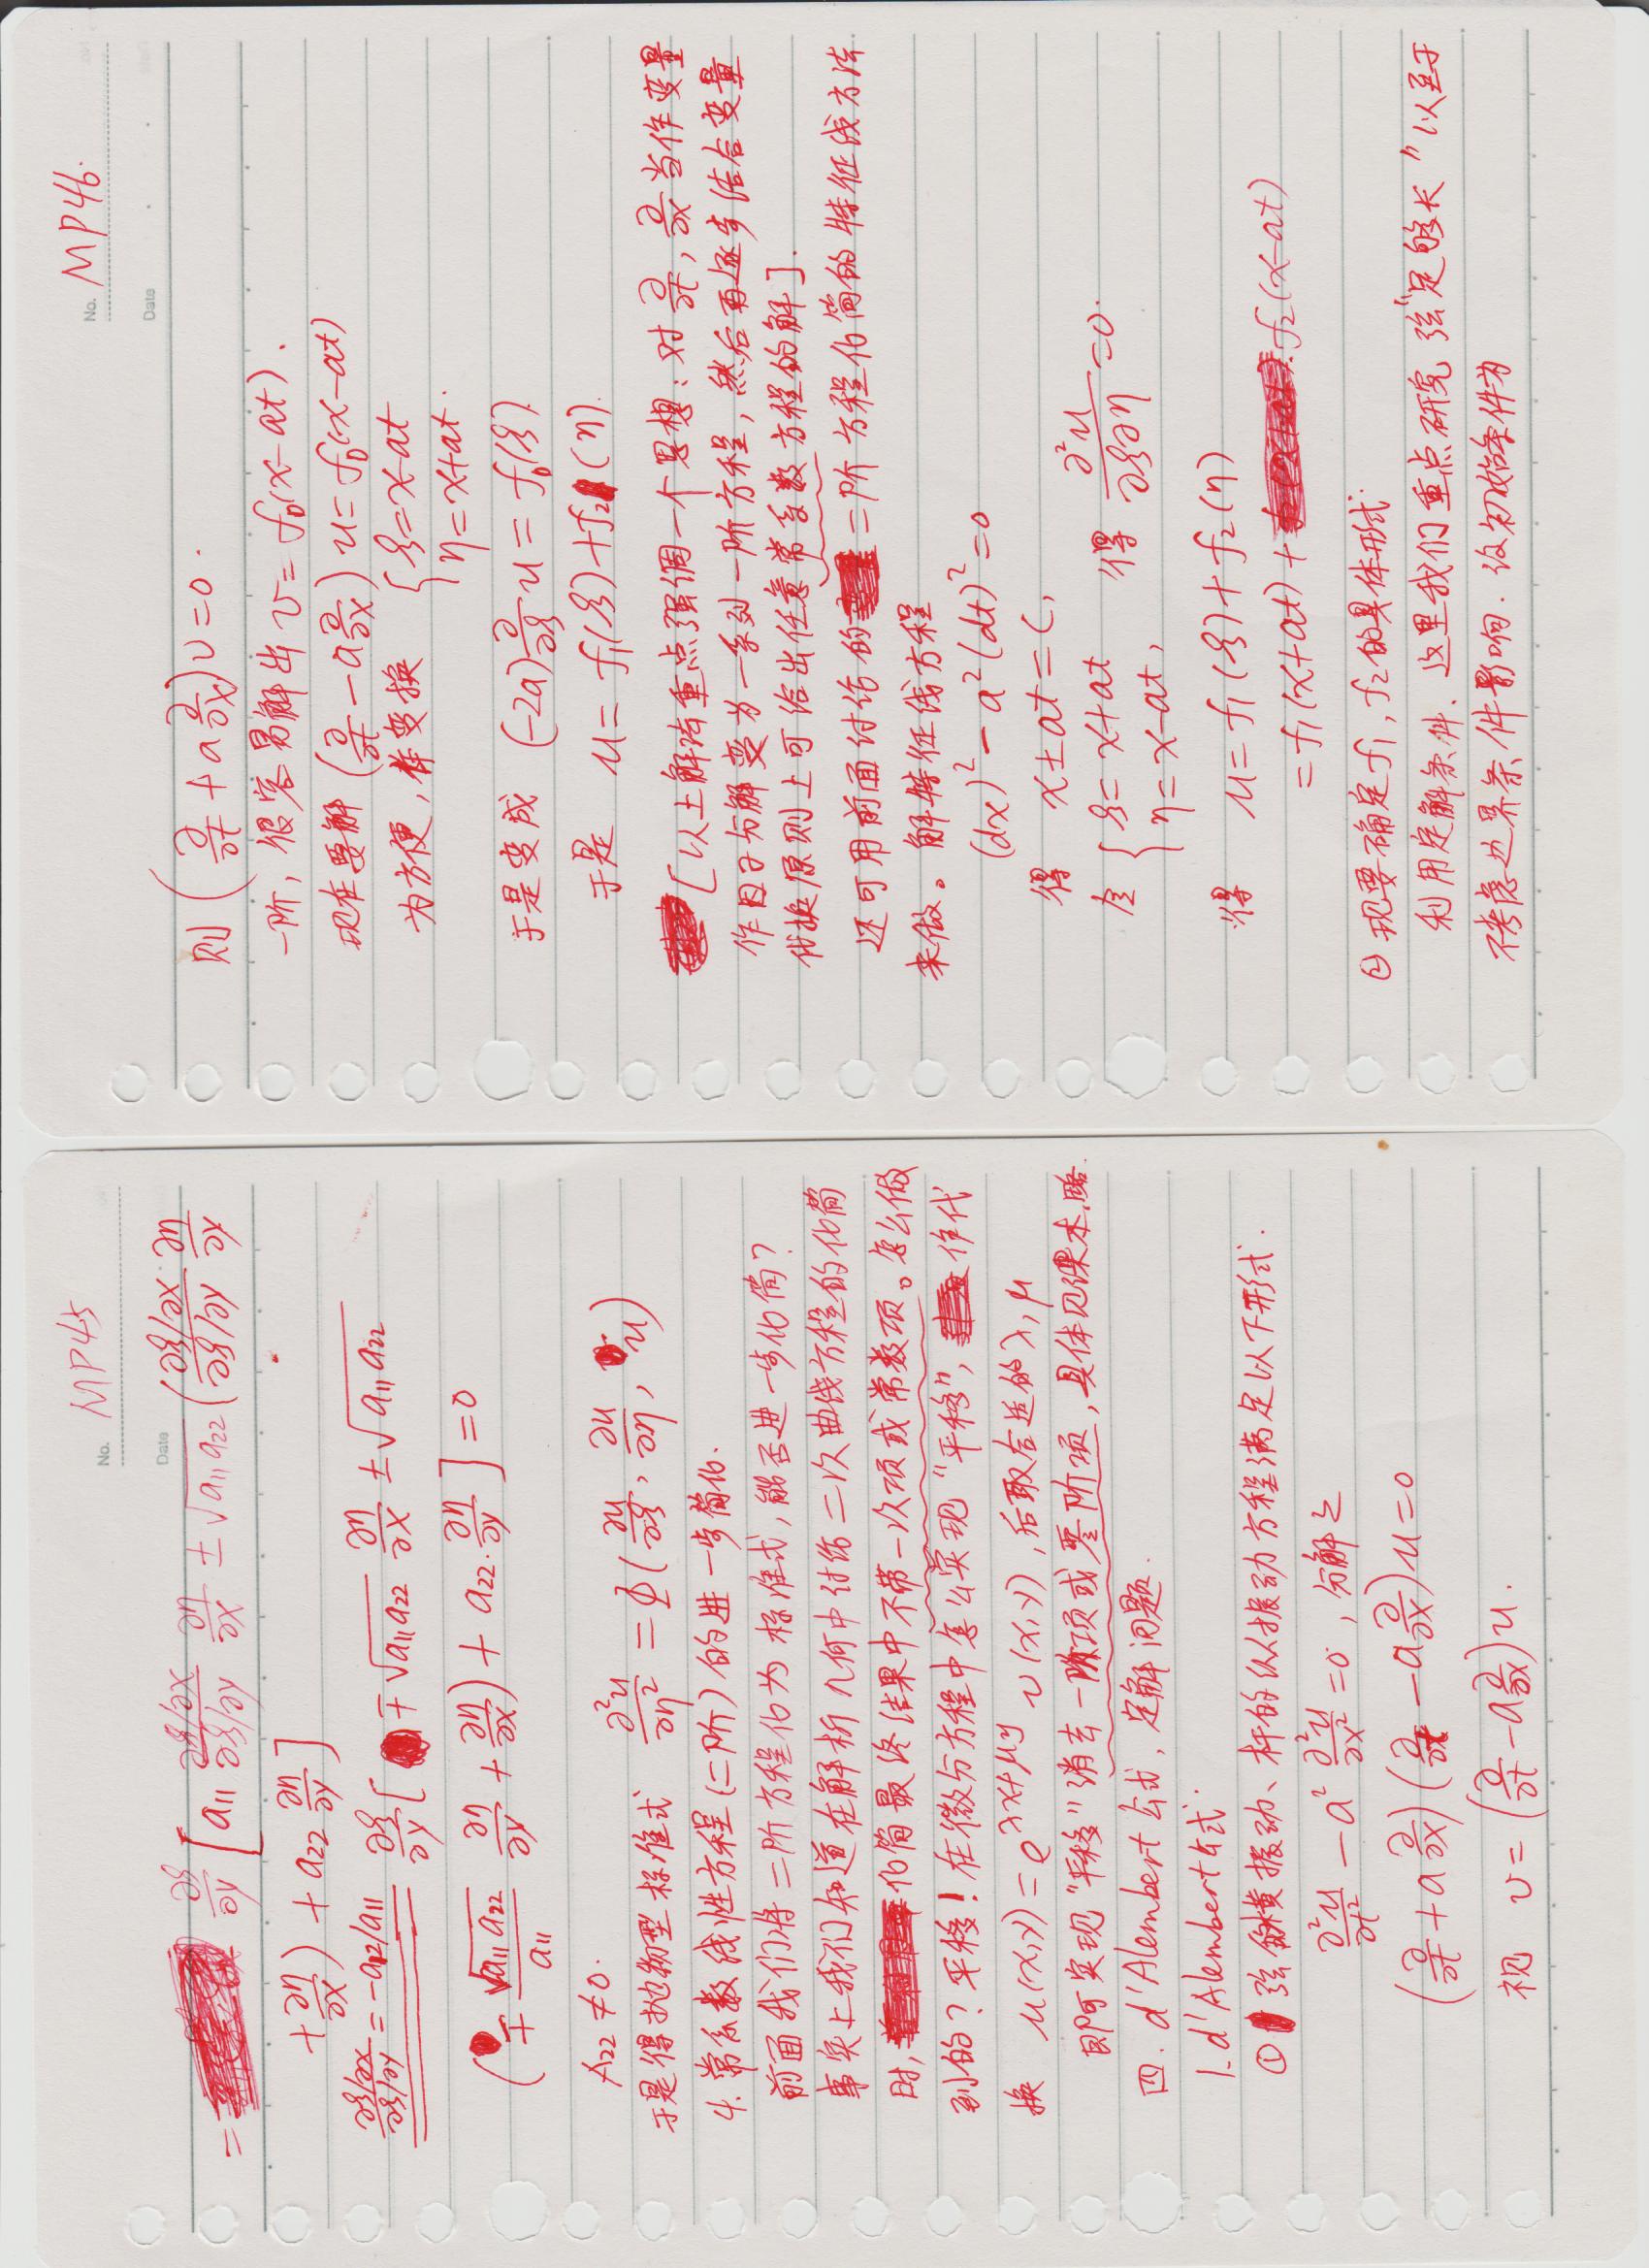 No. MP45
Date
= ∂ξ/∂y [ a₁₁ (∂ξ/∂x)/(∂ξ/∂y) ∂η/∂x ± √(a₁₁a₂₂) ( (∂ξ/∂x)/(∂ξ/∂y) · ∂η/∂y
+ ∂η/∂x ) + a₂₂ ∂η/∂y ]
(∂ξ/∂x)/(∂ξ/∂y) = -a₁₂/a₁₁ ∂ξ/∂y [ ∓√(a₁₁a₂₂) ∂η/∂x ± √(a₁₁a₂₂)
( ∓ √(a₁₁a₂₂)/a₁₁ ∂η/∂y + ∂η/∂x ) + a₂₂ · ∂η/∂y ] = 0
A₂₂ ≠ 0.
于是得抛物型标准式 ∂²u/∂η² = Φ(∂u/∂ξ, ∂u/∂η, u)
4. 常系数线性方程(二阶)的进一步简化.
前面我们将二阶方程化为标准式,能否进一步化简?
事实上我们知道在解析几何中讨论二次曲线方程的化简
时,化简最终结果中不带一次项或常数项。怎么做
到的?平移!在微分方程中怎么实现“平移”,作代
换 u(x,y) = e^(λx+μy) v(x,y),后取合适的λ,μ
即可实现“平移”消去一阶项或零阶项,具体见课本,略.
四. d'Alembert公式,定解问题.
1. d'Alembert公式.
① 弦的横振动、杆的纵振动方程满足以下形式.
∂²u/∂t² - a² ∂²u/∂x² = 0,分解之
(∂/∂t + a ∂/∂x)(∂/∂t - a ∂/∂x)u = 0
视 v = (∂/∂t - a ∂/∂x)u.
No. MP46.
Date
则 (∂/∂t + a ∂/∂x)v = 0.
一阶,很容易解出 v = f₀(x-at).
现在要解 (∂/∂t - a ∂/∂x) u = f₀(x-at)
为方便,作变换 { ξ = x-at
η = x+at.
于是变成 (-2a) ∂/∂ξ u = f₀(ξ).
于是 u = f₁(ξ) + f₂(η).
[以上解法重点强调一个思想:对 ∂/∂t, ∂/∂x 当作变量
作因子分解变为一系列一阶方程,然后再逐步结合变量
代换原则上可给出任意常系数方程的解].
还可用前面讨论的二阶方程化简的特征线方法
来做。解特征线方程
(dx)² - a²(dt)² = 0
得 x±at = C,
令 { ξ = x+at
η = x-at, 得 ∂²u/∂ξ∂η = 0.
得 u = f₁(ξ) + f₂(η)
= f₁(x+at) + f₂(x-at)
② 现要确定f₁,f₂的具体形式.
利用定解条件.这里我们重点研究弦“足够长”以至于
不考虑边界条件影响.设初始条件为